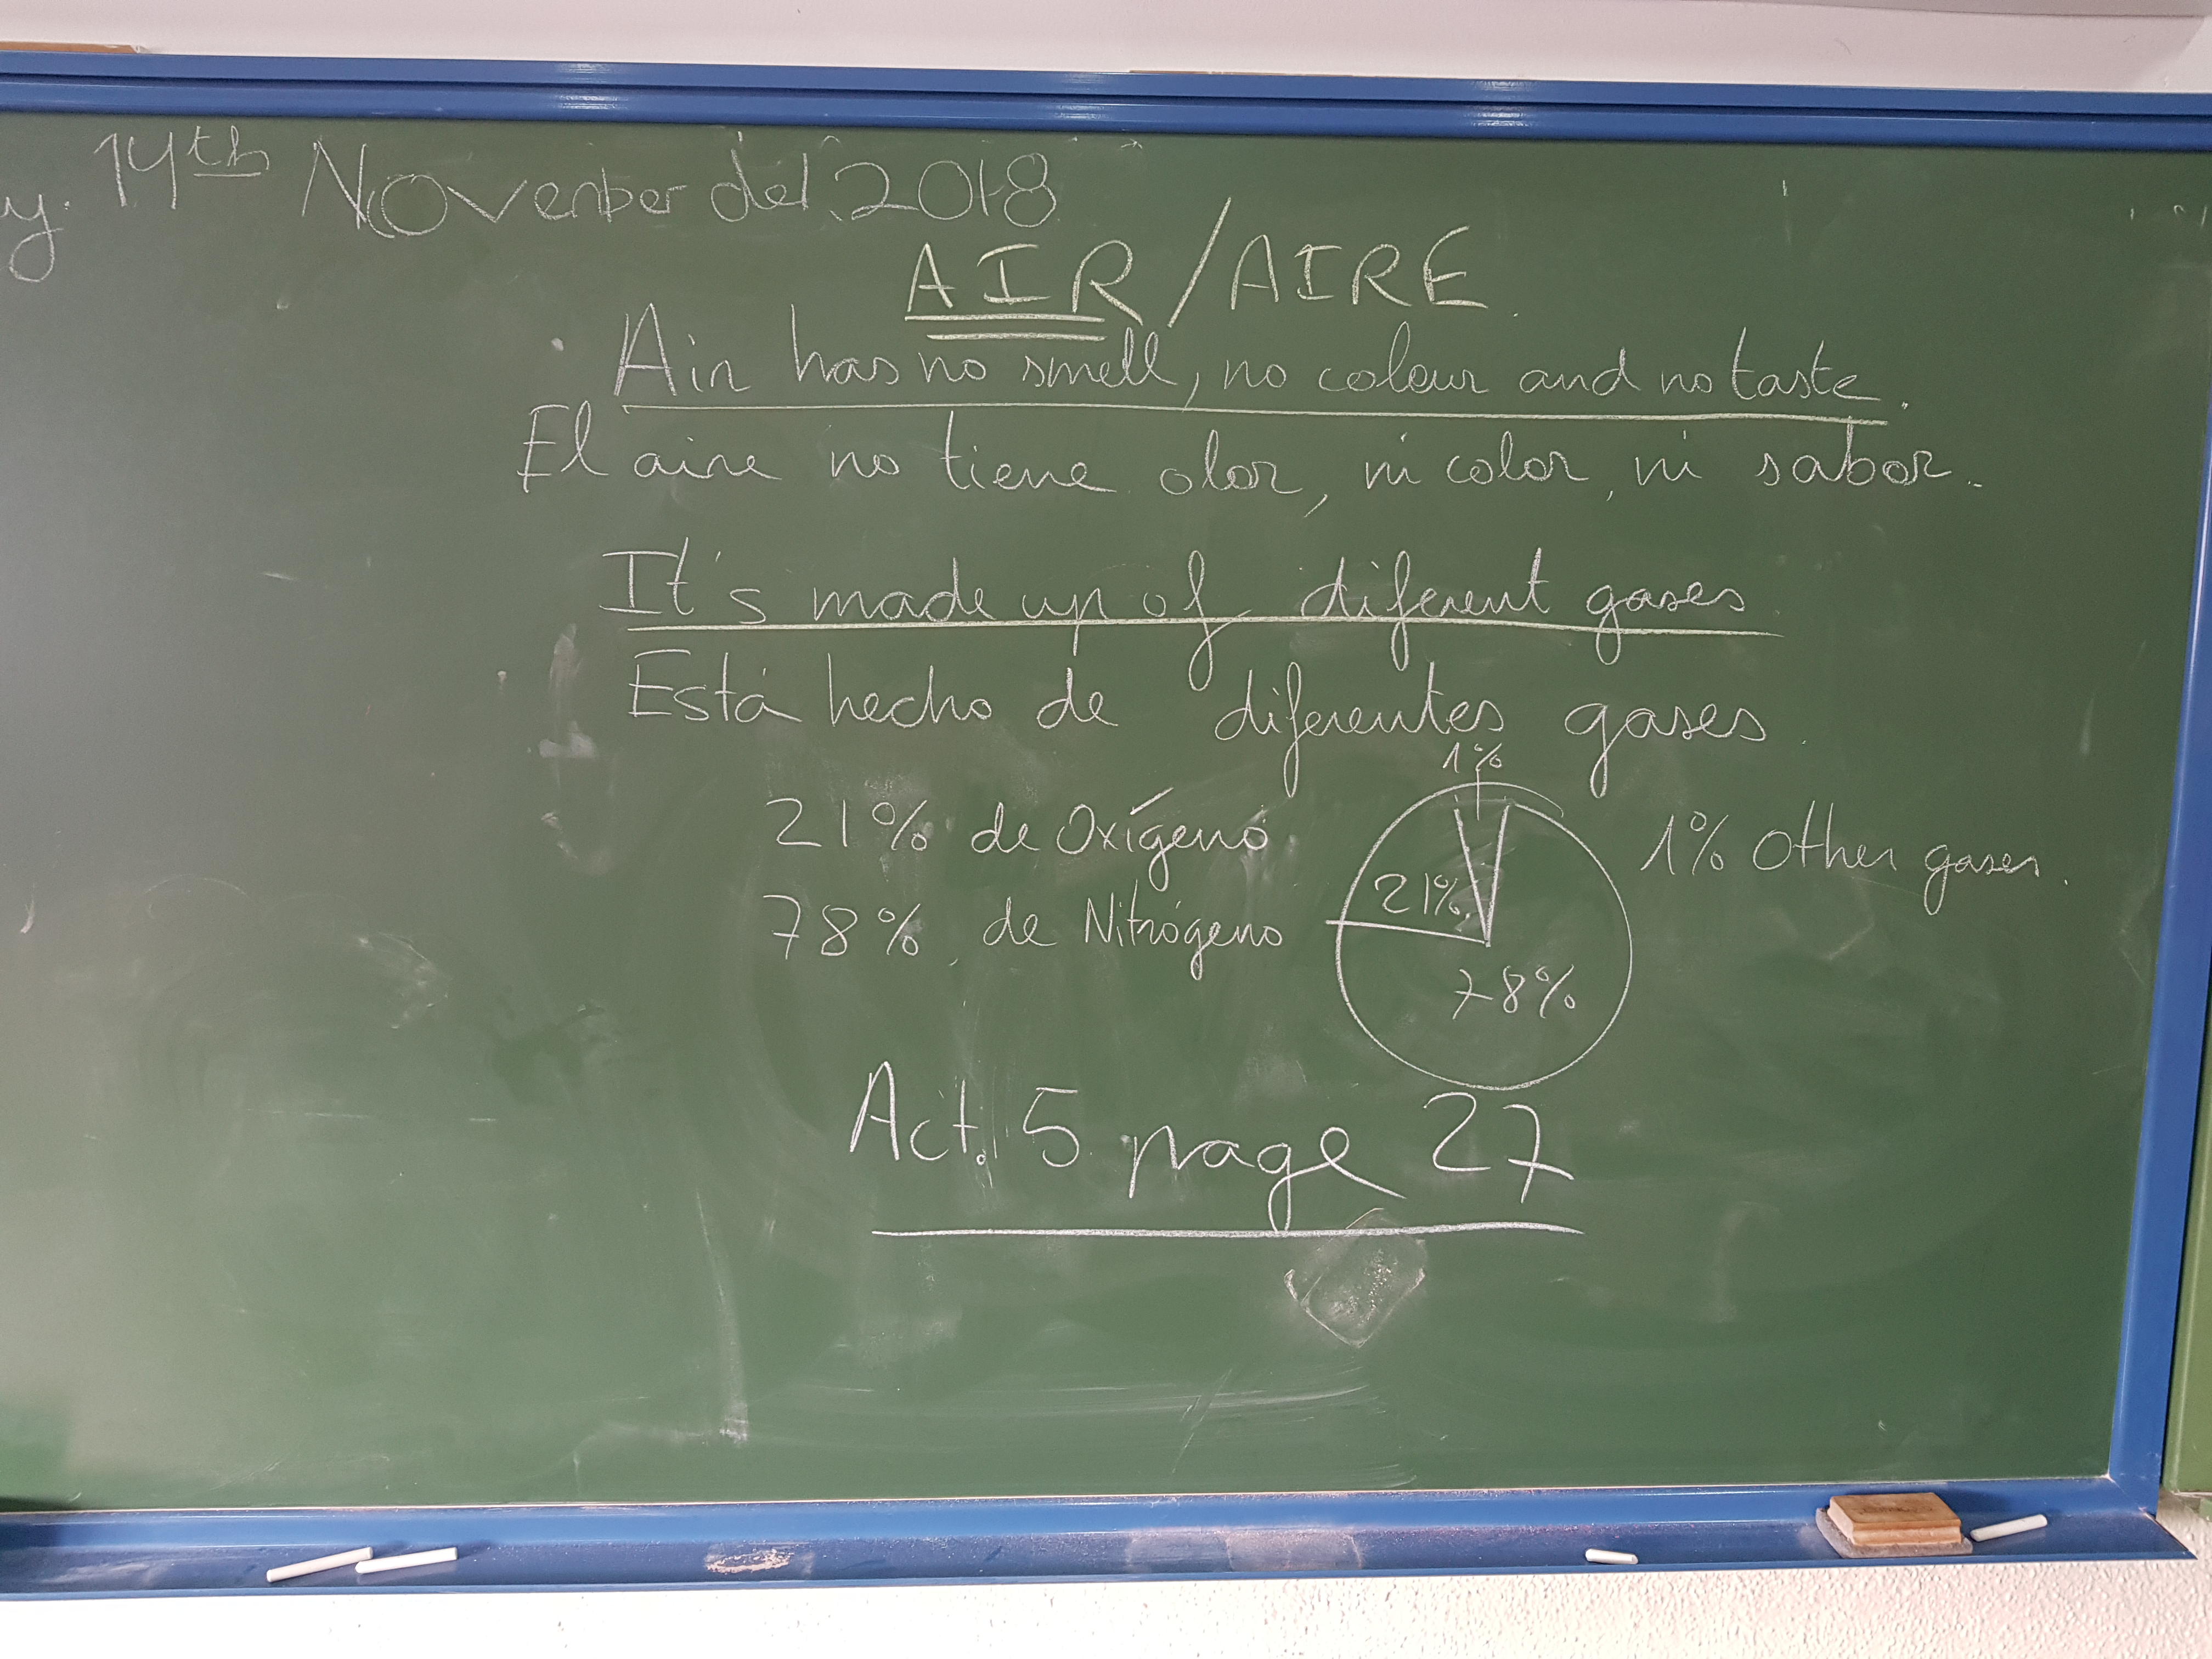 y. 14th November del 2018
AIR/AIRE
Air has no smell, no colour and no taste.
El aire no tiene olor, ni color, ni sabor.
It's made up of diferent gases
Está hecho de diferentes gases.
1%
21% de Oxígeno
21%
1% Other gases.
78% de Nitrógeno
78%
Act. 5 page 27